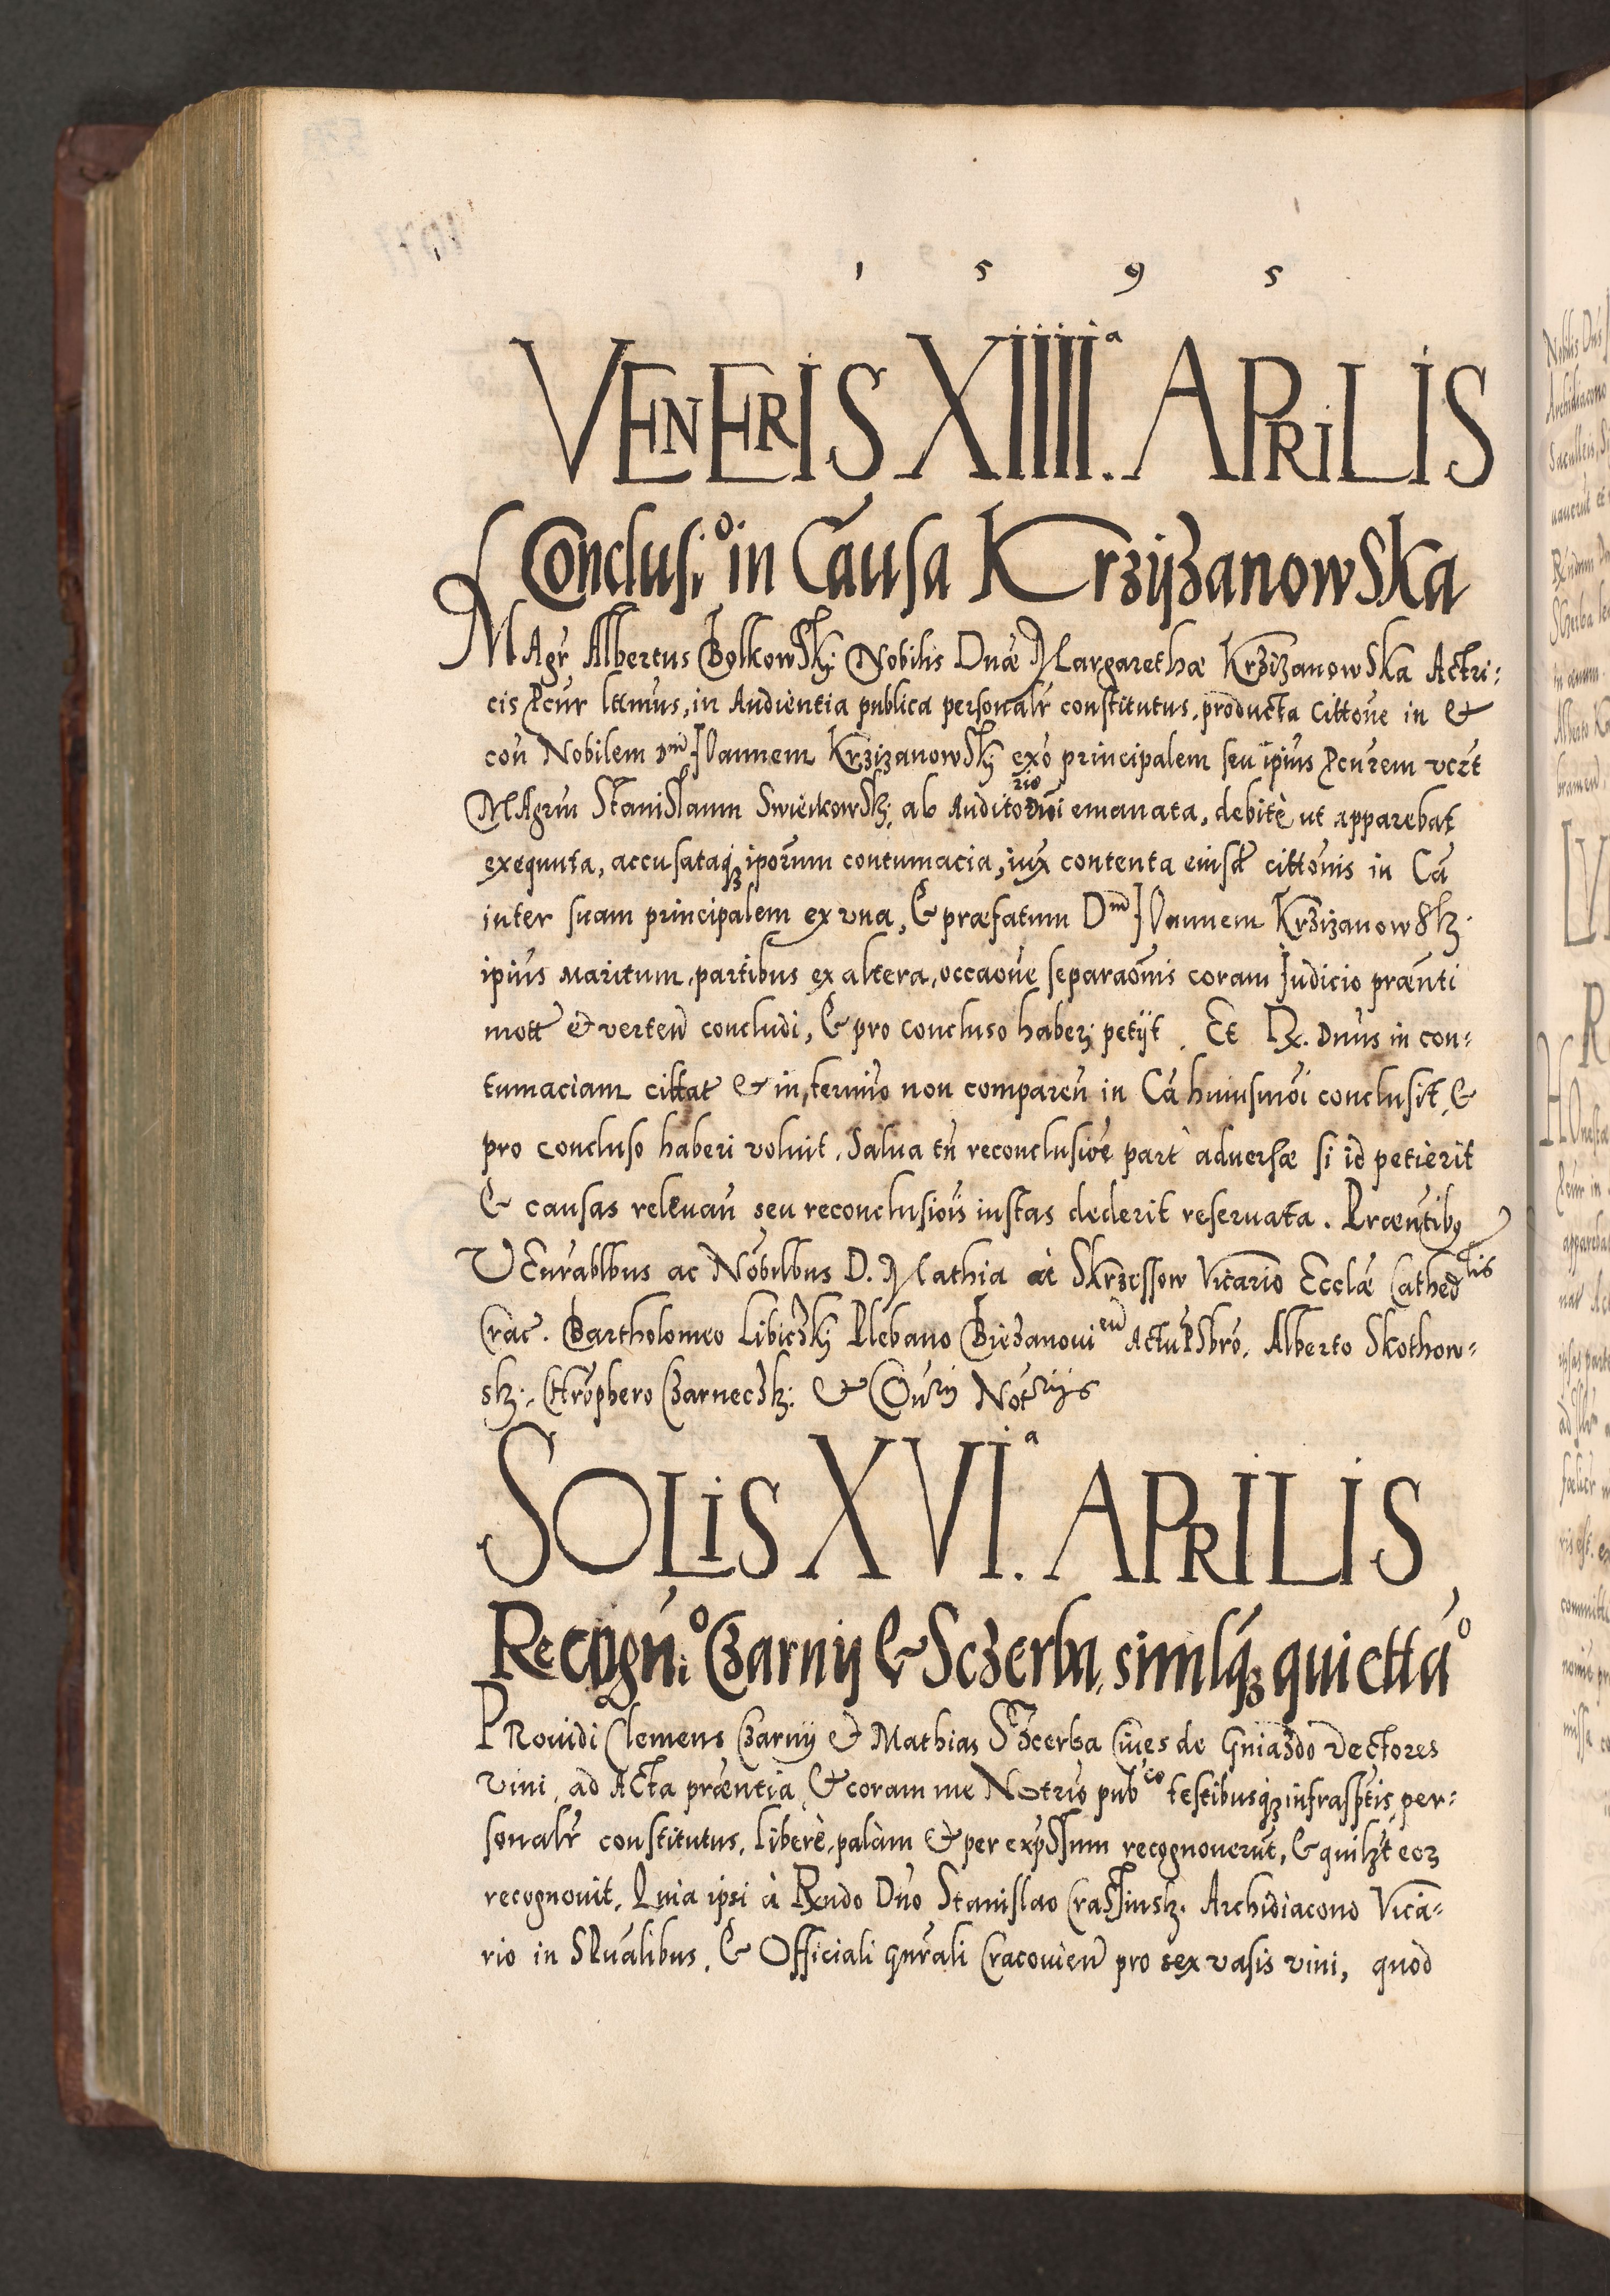 1 5 9 5
VENERIS XIIII.ª APRILIS
Conclus:º in Causa KrzyzanowSka
MAgr Albertus BolkowSkj Nobilis Dnæ Margarethæ KrzizanowSka Actri:
cis Pcur lttmus, in Audientia publica personalr constitutus, producta cittone in &
con Nobilem Dnm Joannem KrzizanowSkj exo principalem seu ipius Pcurem vert
MAgrm StaniSlaum SwieıtkowSkj, ab Auditorio emanata, debitè ut apparebat
exequuta, accusataq₃ iporum contumacia, iux contenta eiusd cittonis in Cā
inter suam principalem ex una, & præfatum Dnm Joannem KrzizanowSkj
ipius Maritum, partibus ex altera, occaone separaonis coram Judicio prænti
mott & verten concludi, & pro concluso haberj petijt. Et Rx. Dnus in con:
tumaciam cittat & in termio non comparen in Cā huiusmoi conclusit, &
pro concluso haberi voluit, Salua tn reconclusioe part aduersæ si id petierit
& causas releuan seu reconclusiois iustas dederit reseruata. Præntib9
VEnrablbus ac Nobilbus D. Mathia à Skrzessow Vicario Ecclæ Cathedlis
Crac. Bartholomeo LibicZkj Plebano BieZanouien Actu PSbro, Alberto Skothow:
skj, Chrophero CzarnecZkj & Curij Notrijs
SOLIS XVI.ª APRILIS
Recogn:º Czarnij & Sczerba, similq₃ quiettaº
PRouidi Clemens Czarnij & Mathias SZcerba Ciues de GniaZdo Vectores
Vini, ad Acta præntia, & coram me Notrio pubco testibusq₃ infrasptis, per:
sonalr constitutus, Liberè, palàm & per expSsum recognouerut, & quilzt eoz
recognouit, Quia ipsi à Rxndo Dno Stanislao CraSsinskj Archidiacono Vicā:
rio in SPualibus, & Officiali gnrali Cracouien pro sex vasis vini, quod